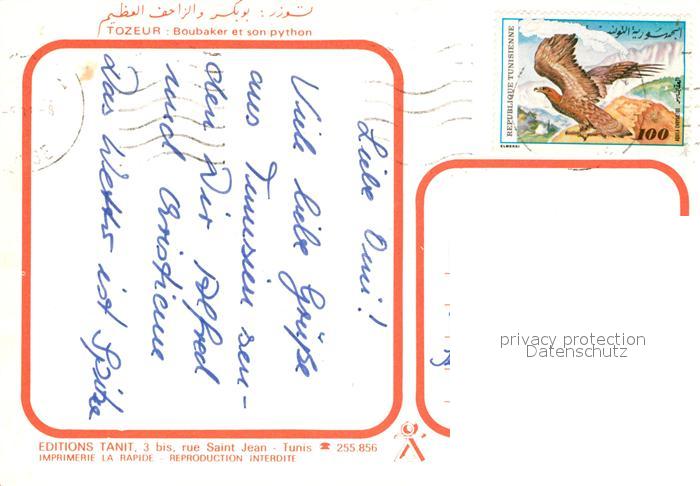 توزر : بوبكر والزاحف العظيم
TOZEUR : Boubaker et son python
Liebe Omi!
Viele liebe Grüße
aus Tunesien sen-
den Dir Alfred
und Christiane
das Wetter ist Spitze
REPUBLIQUE TUNISIENNE
الجمهورية التونسية
100
privacy protection
Datenschutz
EDITIONS TANIT, 3 bis, rue Saint Jean - Tunis ☎ 255.856
IMPRIMERIE LA RAPIDE - REPRODUCTION INTERDITE